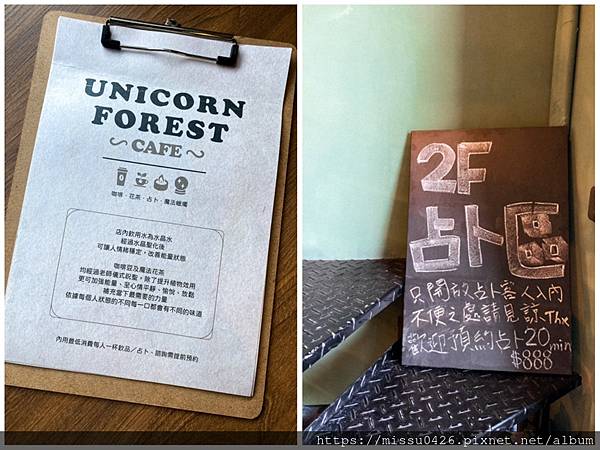 UNICORN
FOREST
CAFE
咖啡·花茶·占卜·魔法蠟燭
店內飲用水為水晶水
經過水晶聖化後
可讓人情緒穩定，改善能量狀態
咖啡豆及魔法花茶
均經過老師儀式祝聖，除了提升植物效用
更可加強能量、至心情平靜、愉悅、放鬆
補充當下最需要的力量
依據每個人狀態的不同每一口都會有不同的味道
內用最低消費每人一杯飲品／占卜、諮詢需提前預約
2F
占卜區
只開放占卜客人入內
不便之處請見諒.Thx
歡迎預約占卜20min
$888
https://missu0426.pixnet.net/album